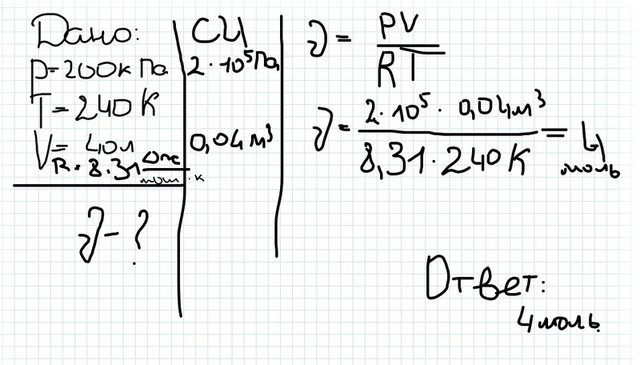 Дано:
P=200кПа
T=240К
V=40л
R=8.31 Дж/моль·К
ν-?
СИ
2·10⁵Па
0,04м³
ν = PV/RT
ν = 2·10⁵·0,04м³/8,31·240К = 4 моль
Ответ:
4 моль